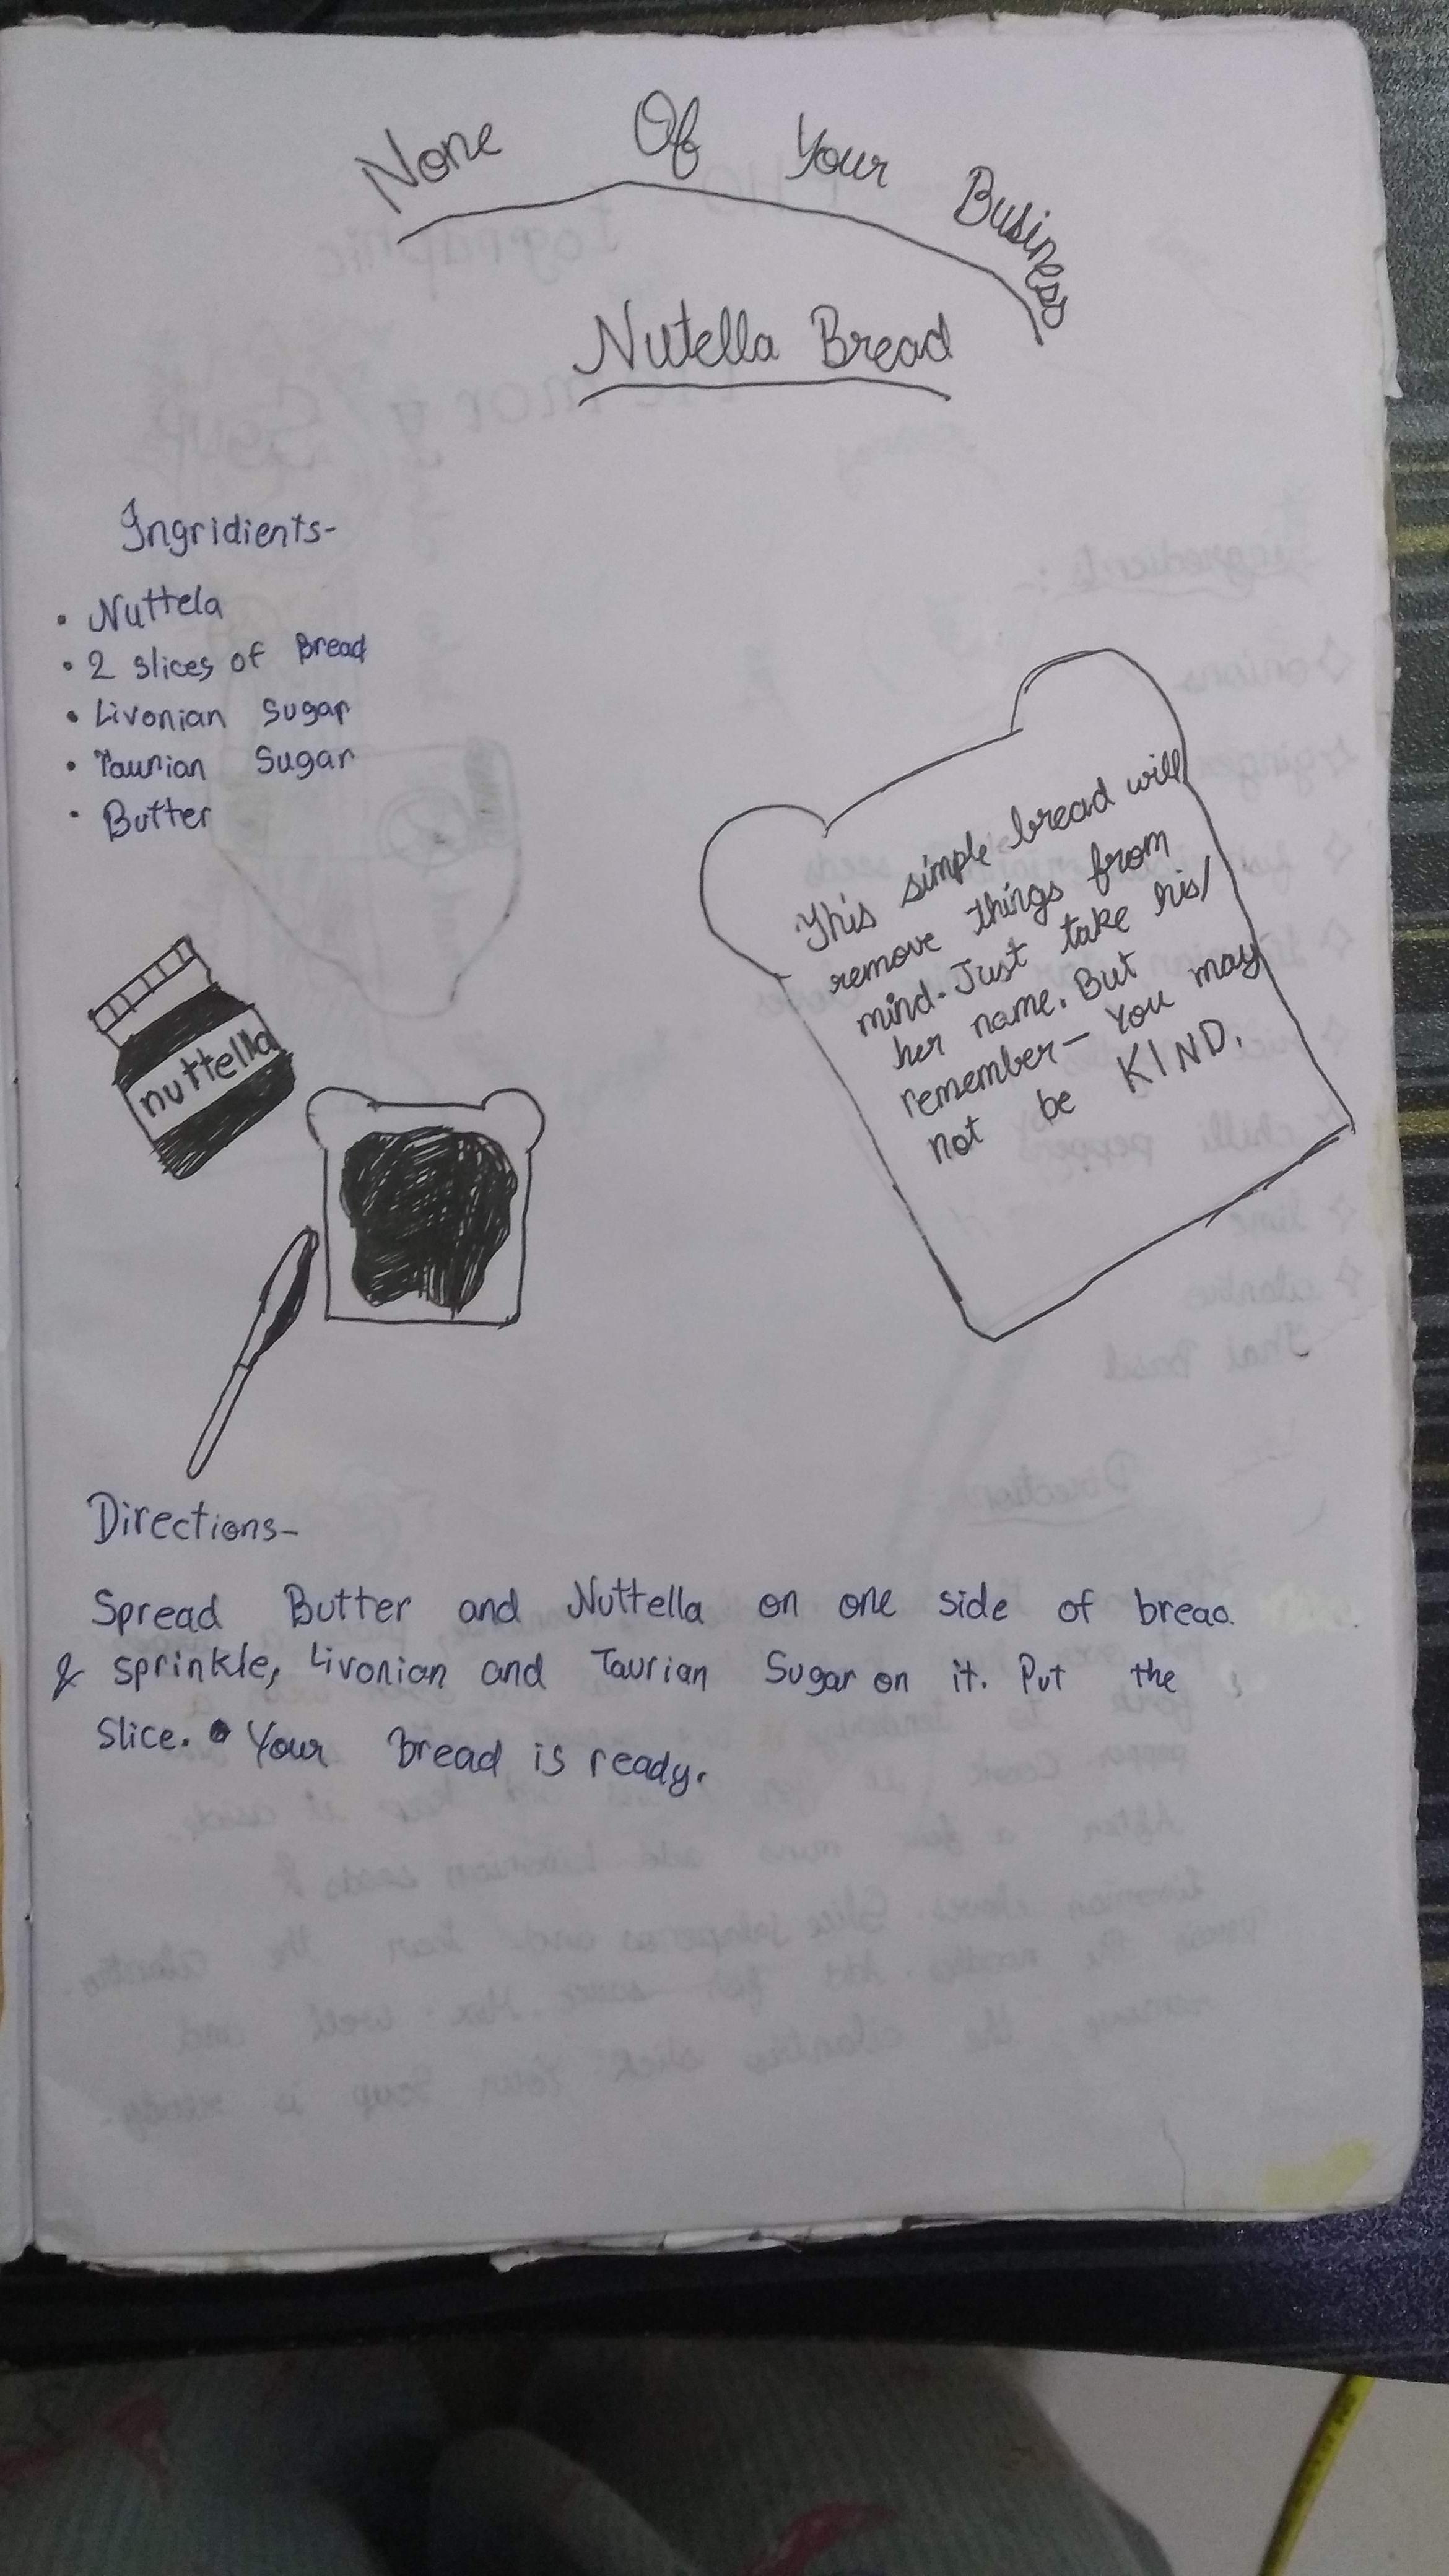 None Of Your Business
Nutella Bread
Ingridients-
• Nuttela
• 2 slices of Bread
• Livonian Sugar
• Taurian Sugar
• Butter
This simple bread will
remove things from
mind. Just take his/
her name. But
remember – You may
not be KIND.
nuttella
Directions-
Spread Butter and Nuttella on one side of bread
& sprinkle, Livonian and Taurian Sugar on it. Put the
Slice. Your Bread is ready.